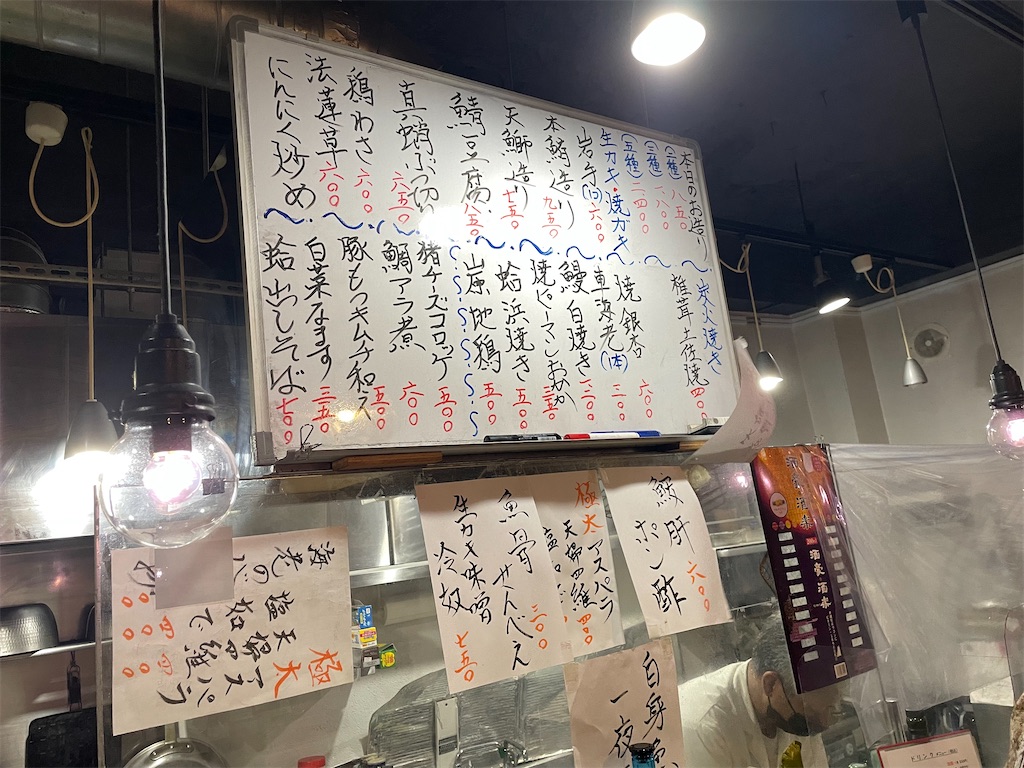 本日のお造り
(二種) 八五〇
(三種) 一、一八〇
(五種) 二、一四〇
生カキ・焼ガキ
岩手(1コ)六〇〇
本鯖造り 九五〇
天鰤造り 七五〇
鯖豆腐 八五〇
真蛸ぶつ切り 六五〇
鶏わさ 六〇〇
法蓮草 六〇〇
にんにく炒め
炭火焼き
椎茸土佐焼 四〇〇
焼銀杏 六〇〇
車海老(1本)
鰻白焼き
焼ピーマンおかか 三五〇
蛤浜焼き 五五〇
地鶏 五〇〇
猪チーズコロッケ 五五〇
鯛アラ煮 六〇〇
豚もつキムチ和え 五五〇
白菜なます 三五〇
蛤出しそば 七〇〇
鮟肝ポン酢 六〇〇
極太アスパラ
天婦羅 四〇〇
魚骨せんべえ 三〇〇
生カキ味噌
冷奴 七五〇
極太アスパラ
天婦羅 四〇〇
白身
一夜